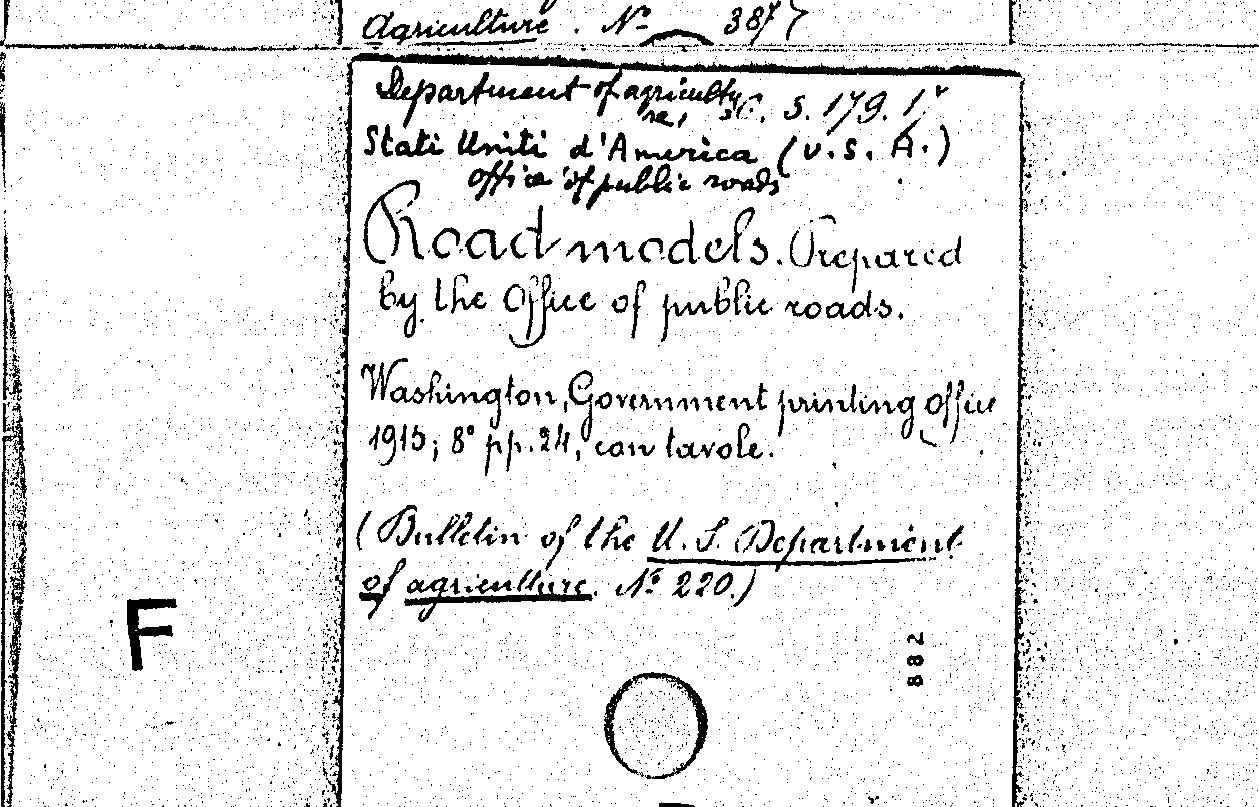 Agriculture. Nº 387)
Department of agricultu
re, 56. S. 179. 1v
Stati Uniti d'America (U.S.A.)
office of public roads
Road models. Prepared
by the Office of public roads.
Washington, Government printing office
1915; 8° pp. 24, con tavole.
(Bulletin of the U. S. Department
of agriculture. Nº 220.)
F
882